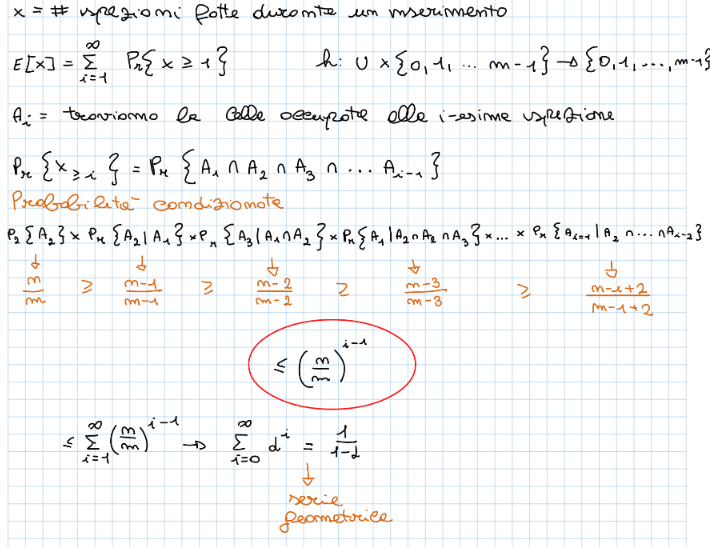 x = # ispezioni fatte durante un inserimento
E[x] = ∑_{i=1}^{∞} Pr{x ≥ 1}    h: U × {0, 1, ... m-1} → {0, 1, ..., m-1}
A_i = troviamo la cella occupata alla i-esima ispezione
Pr{x ≥ i} = Pr{A_1 ∩ A_2 ∩ A_3 ∩ ... A_{i-1}}
Probabilità condizionate
P_2{A_2} × Pr{A_2 | A_1} × Pr{A_3 | A_1 ∩ A_2} × Pr{A_1 | A_2 ∩ A_2 ∩ A_3} × ... × Pr{A_{i-1} | A_2 ∩ ... ∩ A_{i-2}}
n/m ≥ n-1/m-1 ≥ n-2/m-2 ≥ n-3/m-3 ≥ n-i+2/m-i+2
≤ (n/m)^{i-1}
≤ ∑_{i=1}^{∞} (n/m)^{i-1} → ∑_{i=0}^{∞} d^i = 1/1-d
serie
geometrica